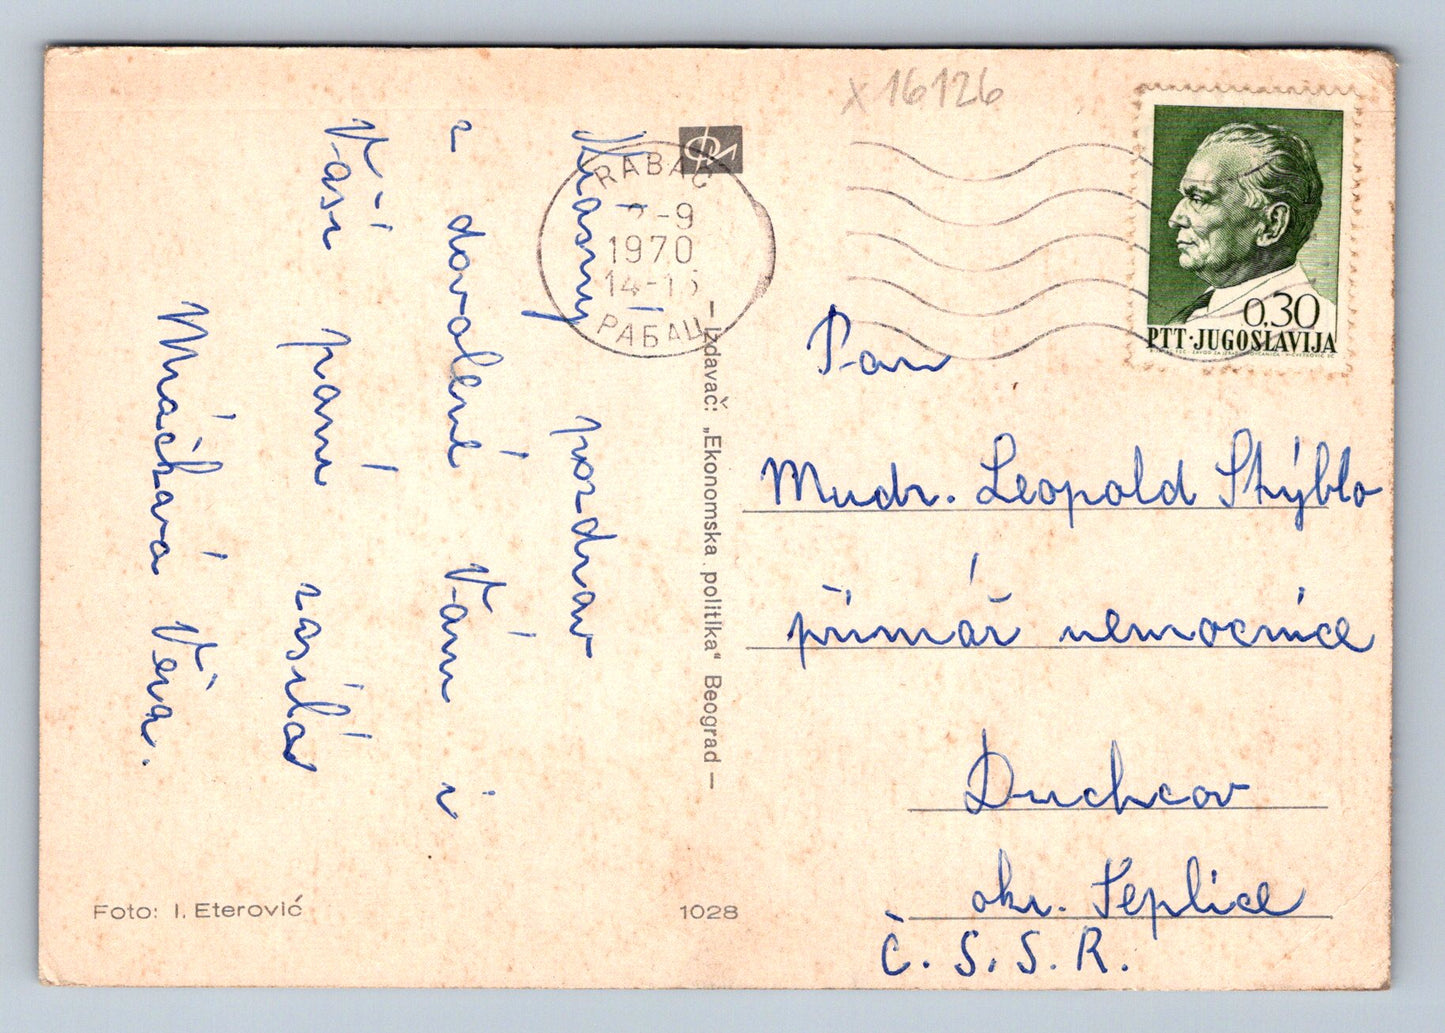 x 16126
Krásný pozdrav
z dovolené Vám i
Vaší paní zasílá
Mráčková Věra.
RABAC
-9
1970
РАБАЦ
0,30
PTT·JUGOSLAVIJA
Pan
Mudr. Leopold Stýblo
primář nemocnice
Duchcov
okr. Teplice
Č.S.S.R.
— Izdavač: „Ekonomska politika“ Beograd —
Foto: I. Eterović
1028